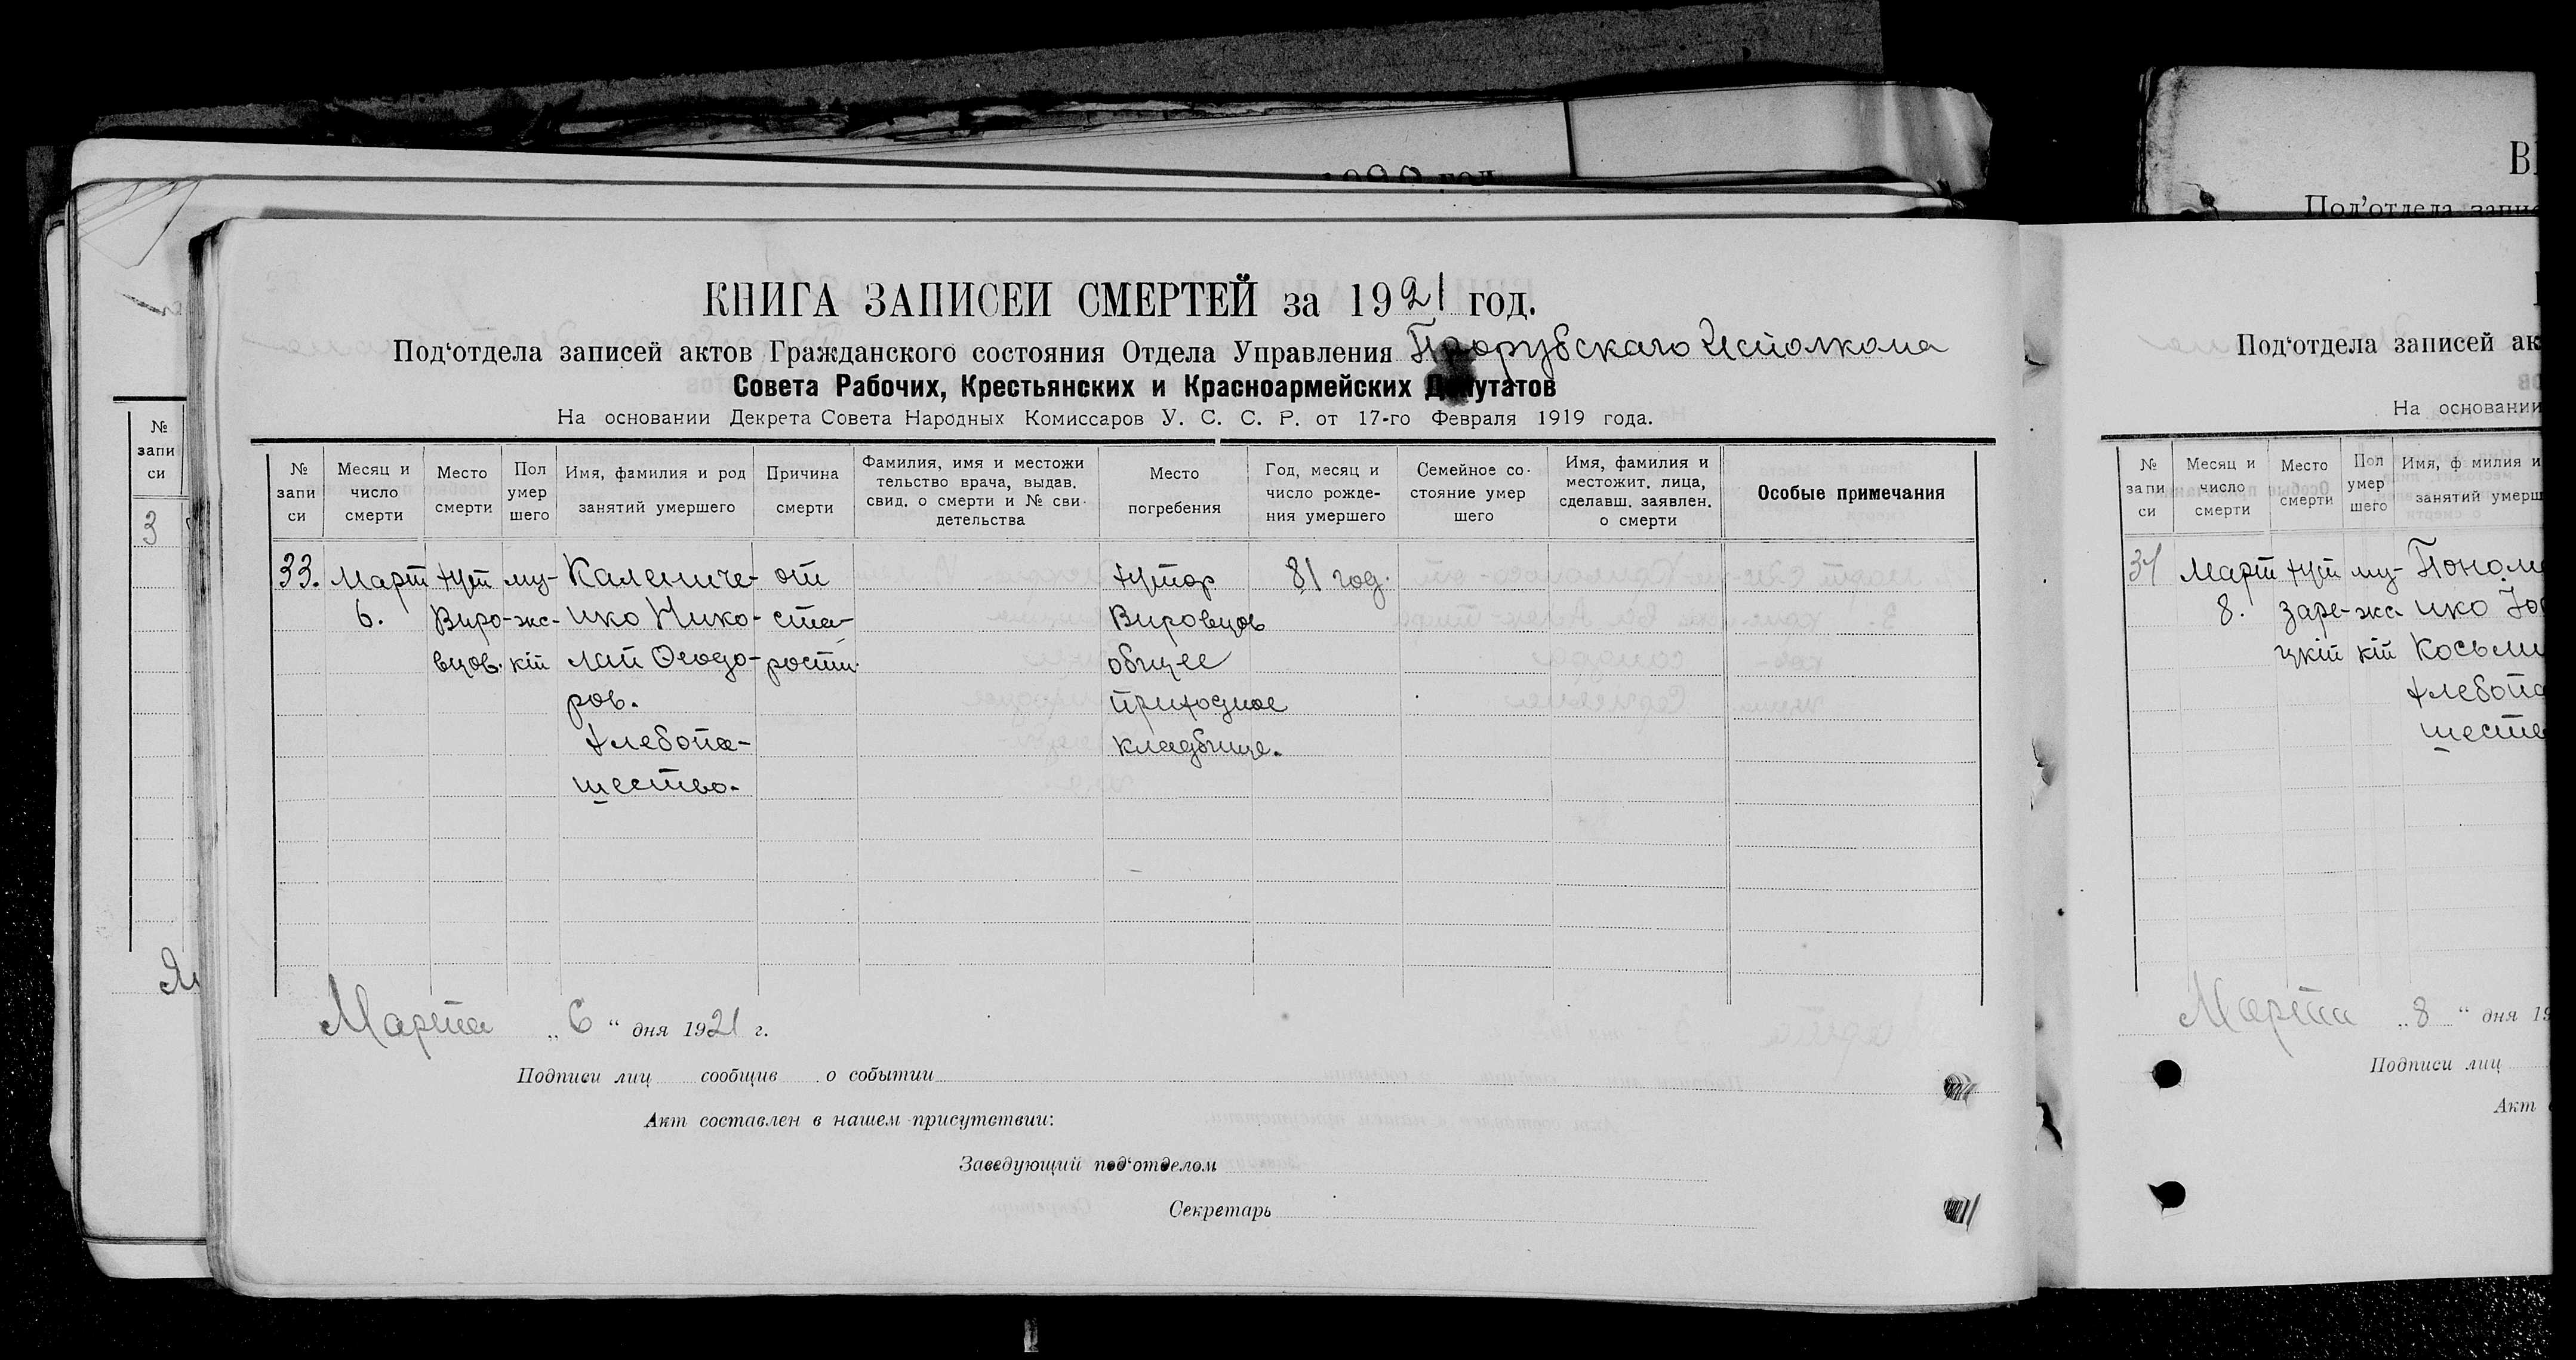 1920 год
КНИГА ЗАПИСЕЙ СМЕРТЕЙ за 1921 год.
Под'отдела записей актов Гражданского состояния Отдела Управления Прорубскаго Исполкома
Совета Рабочих, Крестьянских и Красноармейских Депутатов
На основании Декрета Совета Народных Комиссаров У. С. С. Р. от 17-го Февраля 1919 года.
№ запи си
Месяц и число смерти
Место смерти
Пол умер шего
Имя, фамилия и род занятий умершего
Причина смерти
Фамилия, имя и местожи тельство врача, выдав. свид. о смерти и № сви- детельства
Место погребения
Год, месяц и число рожде- ния умершего
Семейное со- стояние умер шего
Имя, фамилия и местожит. лица, сделавш. заявлен. о смерти
Особые примечания
33. Март хут му- Калениче- от хутор 81 год.
6. Виро- жс- нко Нико- ста- Вировцов
вцов. кій лай Феодо- рости. общее
ров. приходное
хлебопа- кладбище.
шество.
Марта „6“ дня 1921 г.
Подписи лиц сообщив о событии
Акт составлен в нашем присутствии:
Заведующий под'отделом
Секретарь
№ запи си
3
Под'отдела запис
Под'отдела записей ак
На основании
№ запи си
Месяц и число смерти
Место смерти
Пол умер шего
Имя, ф милия и
занятий умерш
34 Март хут му-
8. заре- жс- нко
цкій кій Косьми
хлебопа
шеств
Марта „8“ дня 19
Подписи лиц
Акт